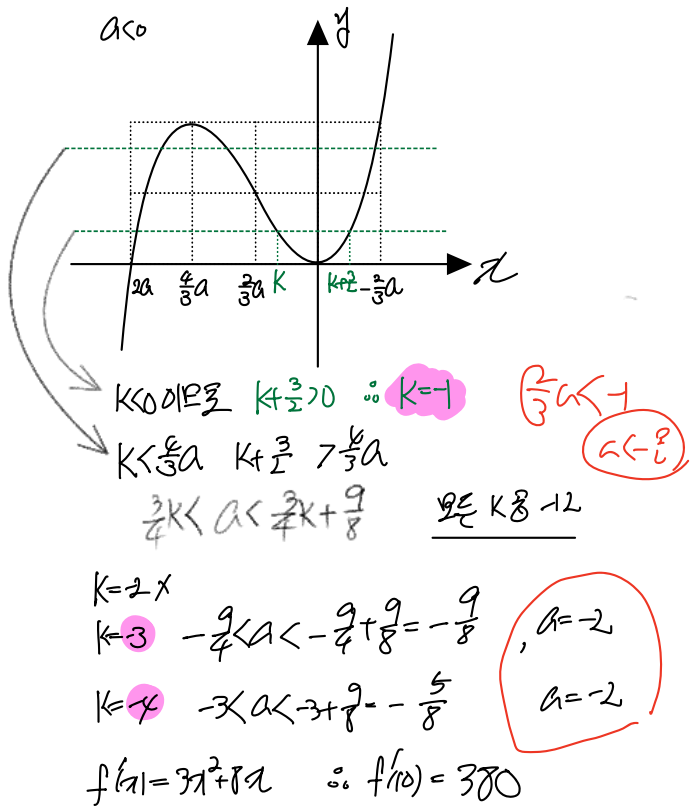 a<0
y
x
2a 4/3a 2/3a K K+3/2 -2/3a
K<0이므로 K+3/2>0 ∴ K=-1
2/3a<-1
K<4/3a K+3/2>4/3a
3/4K<a<3/4K+9/8
모든 K곱 -12
K=-2 ×
K=-3 -9/4<a<-9/4+9/8=-9/8, a=-2
K=-4 -3<a<-3+9/8=-5/8 a=-2
f'(x)=3x²+8x ∴ f'(10)=380